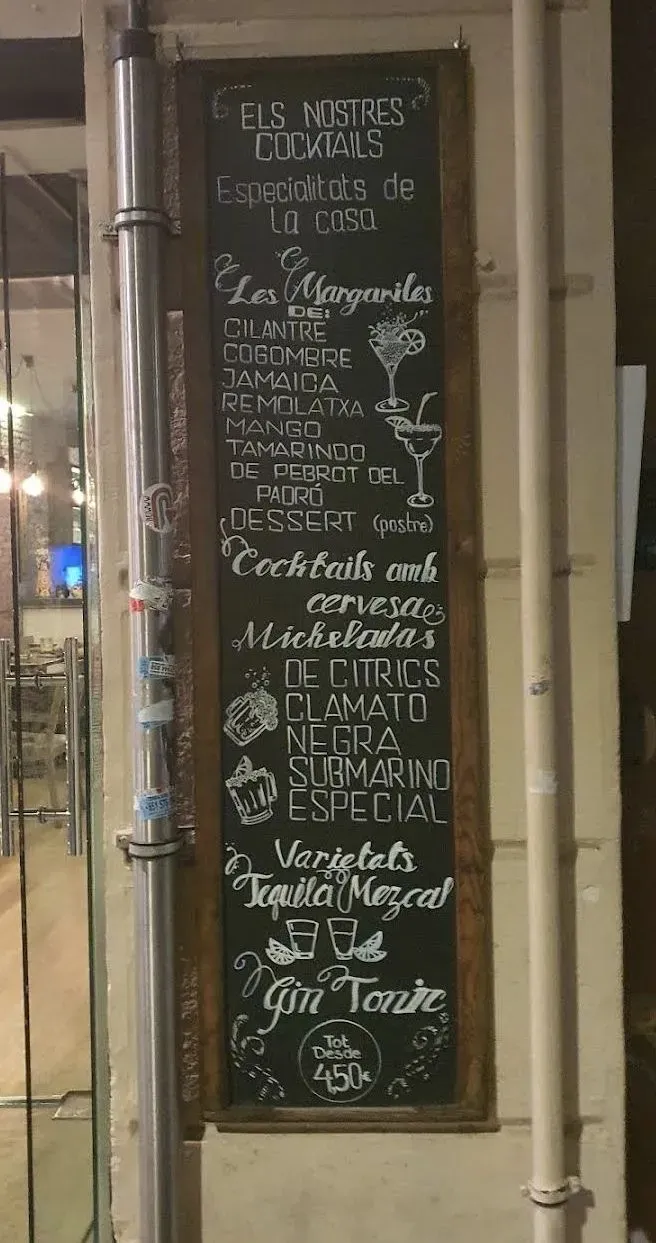 ELS NOSTRES
COCKTAILS
Especialitats de
la casa
Les Margarites
DE:
CILANTRE
COGOMBRE
JAMAICA
REMOLATXA
MANGO
TAMARINDO
DE PEBROT DEL
PADRÓ
DESSERT (postre)
Cocktails amb
cervesa
Micheladas
DE CITRICS
CLAMATO
NEGRA
SUBMARINO
ESPECIAL
Varietats
Tequila Mezcal
Gin Tonic
Tot
Desde
4,50€